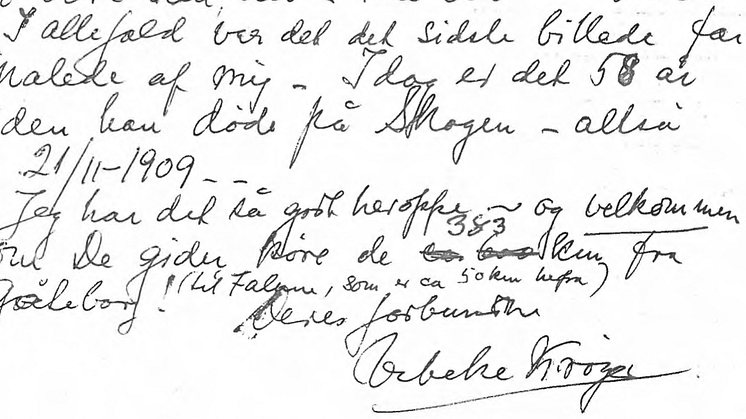 I allefald var det det sidste billede far
malede af mig - Idag er det 58 år
siden han døde på Skagen - altså
21/11-1909 - -
Jeg har det så godt heroppe - og velkommen
om De gider køre de 383 km fra
Gøteborg! (til Falun, som er ca 50 km herfra)
Deres forbundne
Vibeke Krøyer